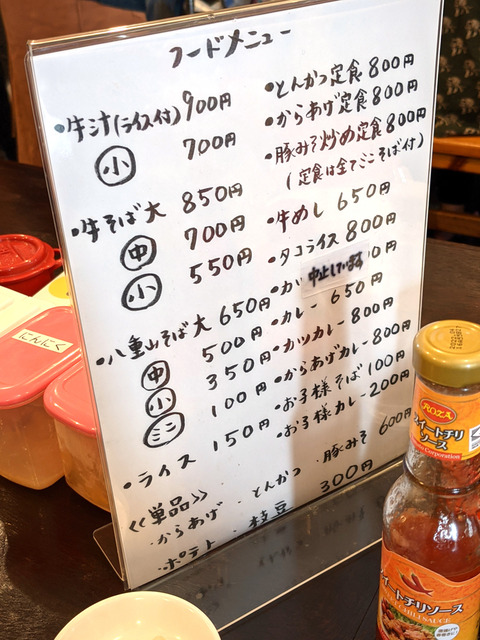 フードメニュー
・牛汁(ライス付) 900円
小 700円
・牛そば 大 850円
中 700円
小 550円
・八重山そば 大 650円
中 500円
小 350円
ミニ 100円
・ライス 150円
≪単品≫
・からあげ ・とんかつ ・豚みそ 600円
・ポテト ・枝豆 300円
・とんかつ定食 800円
・からあげ定食 800円
・豚みそ炒め定食 800円
(定食は全てミニそば付)
・牛めし 650円
・タコライス 800円
中止しています 0円
・カレー 650円
・カツカレー 800円
・からあげカレー 800円
・お子様そば 100円
・お子様カレー 200円
にんにく
ROZA
スイートチリ
ソース
Corporation
スイートチリソース
CHILI SAUCE